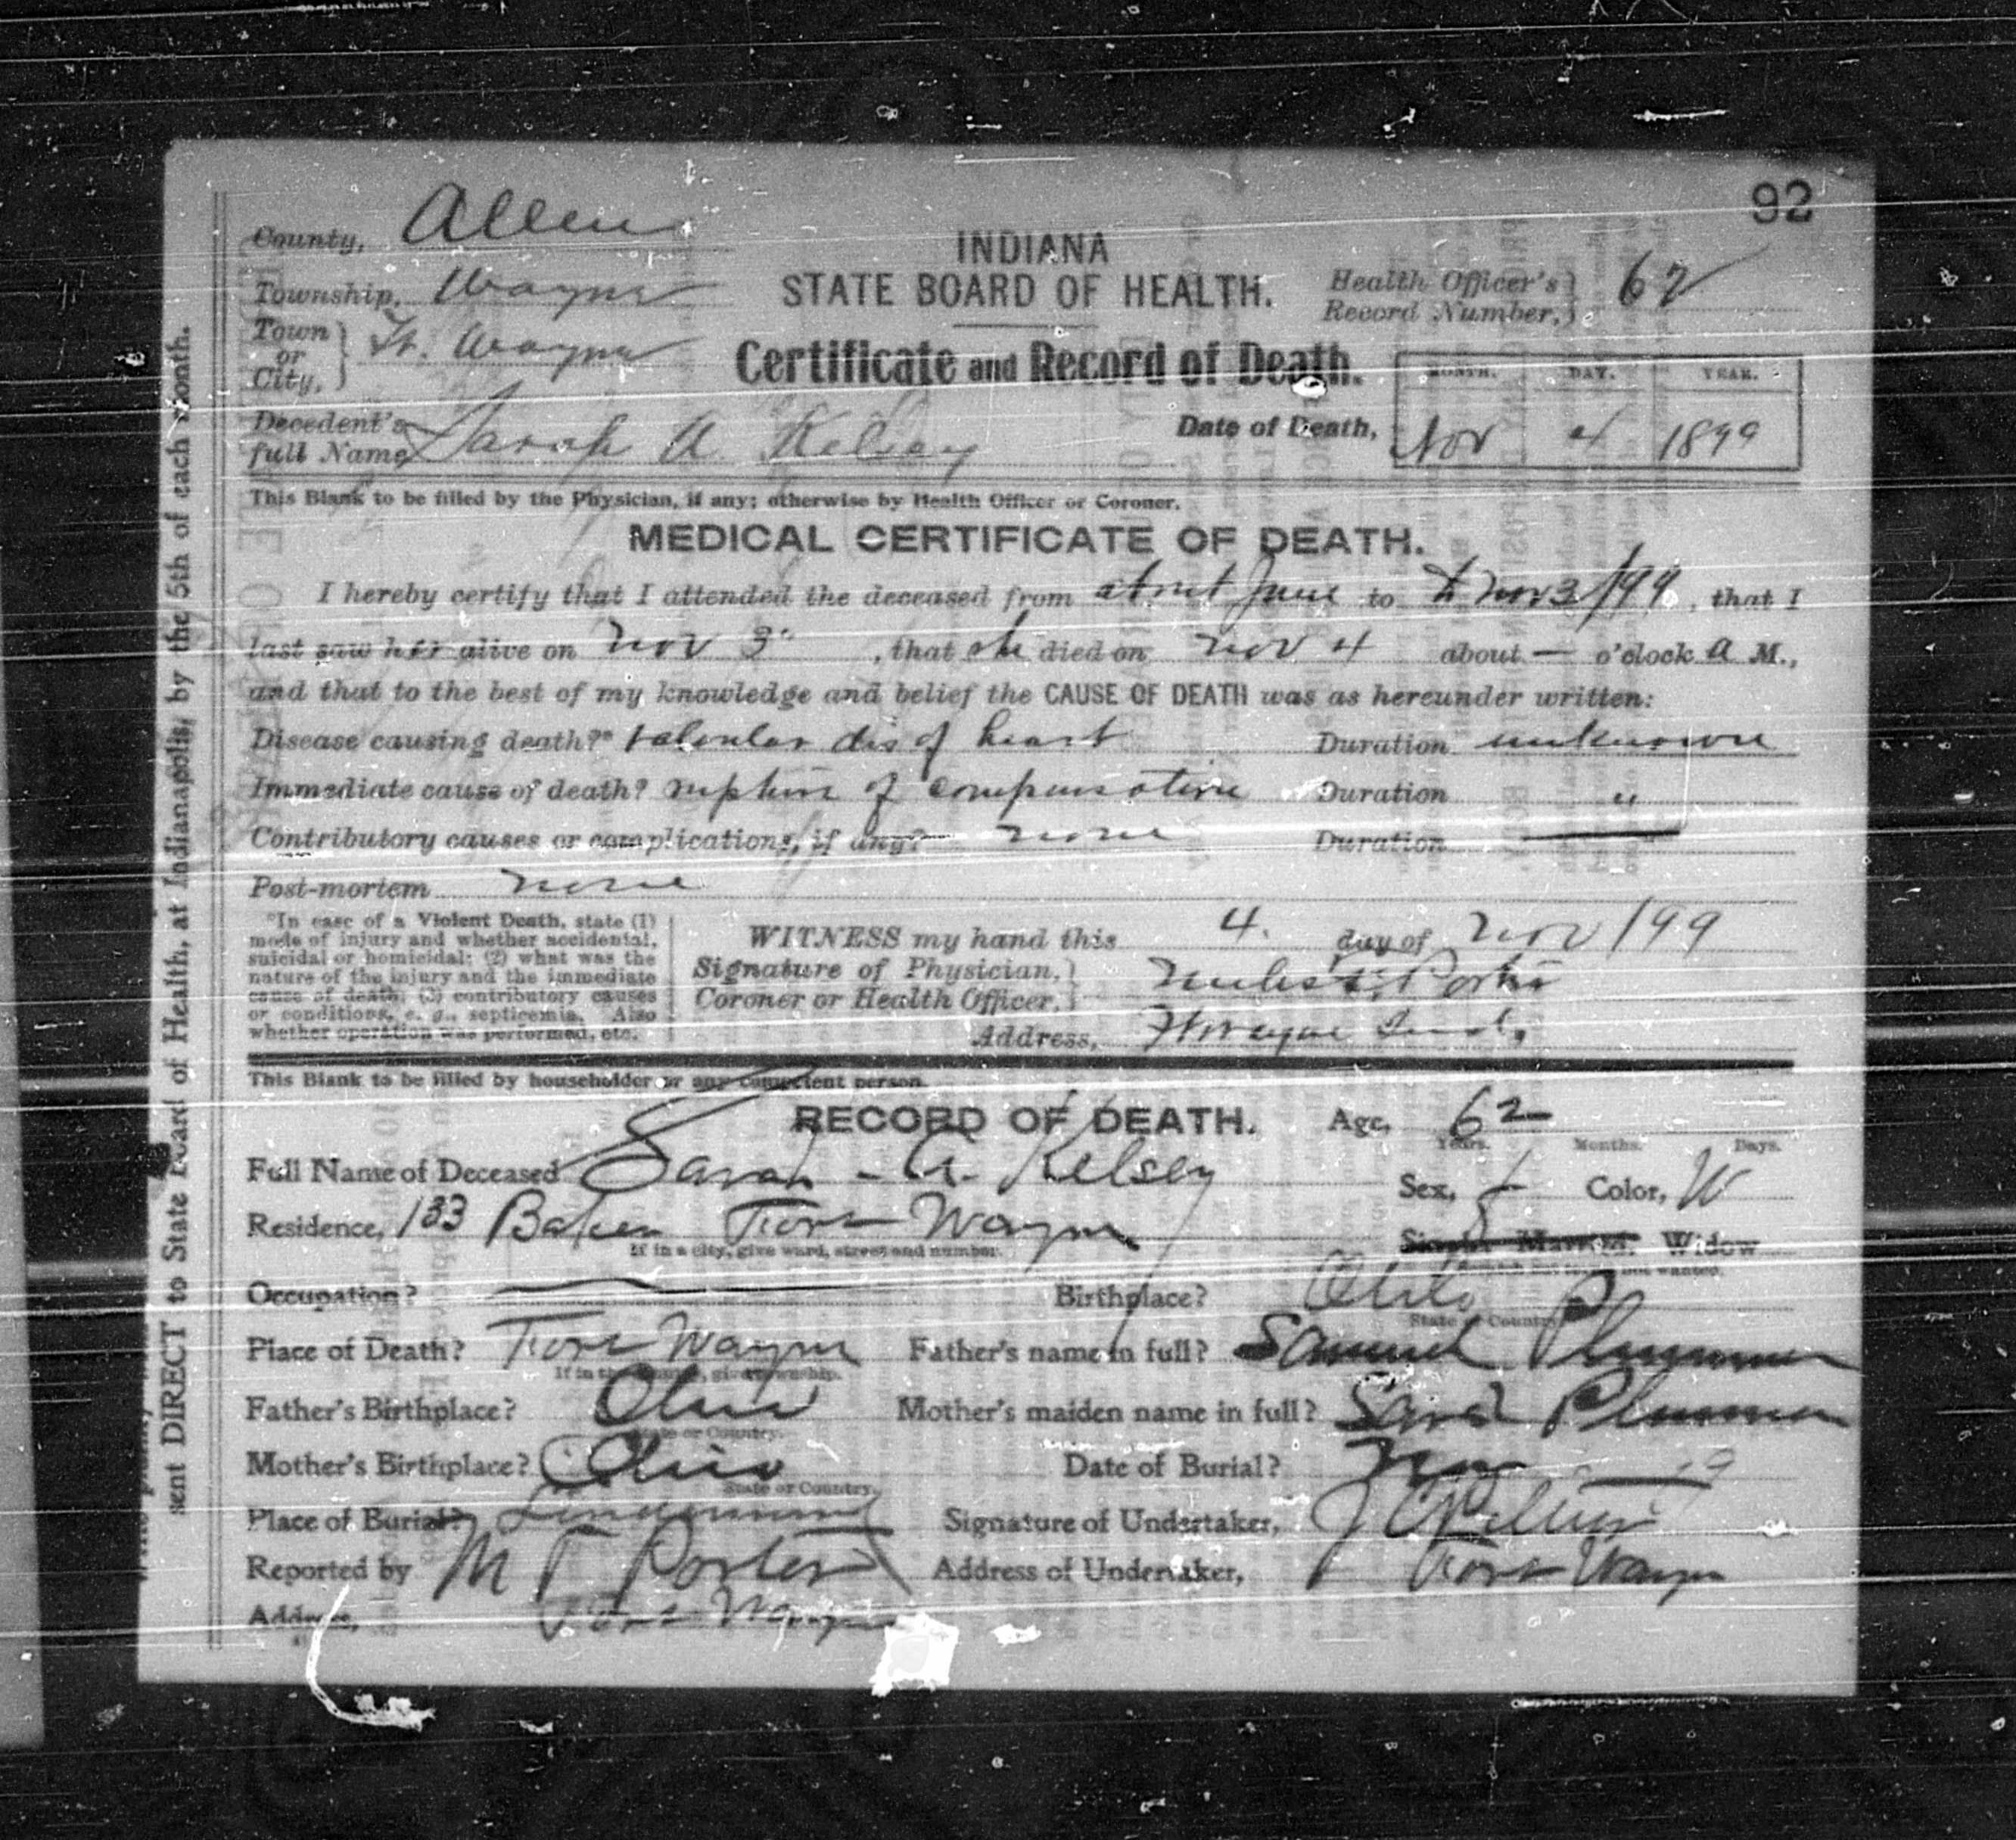 92
County, Allen
INDIANA
STATE BOARD OF HEALTH.
Township, Wayne
Health Officer's
Record Number, 62
Town
or
City, Ft. Wayne
Certificate and Record of Death.
MONTH. DAY. YEAR.
Decedent's
full Name Sarah A. Kelsey
Date of Death, Nov 4 1899
This Blank to be filled by the Physician, if any; otherwise by Health Officer or Coroner.
MEDICAL CERTIFICATE OF DEATH.
I hereby certify that I attended the deceased from about June to Nov 3/99, that I
last saw her alive on Nov 3, that she died on Nov 4 about — o'clock A M.,
and that to the best of my knowledge and belief the CAUSE OF DEATH was as hereunder written:
Disease causing death?* valvular dis of heart Duration unknown
Immediate cause of death? rupture of compensation Duration "
Contributory causes or complications, if any? none Duration —
Post-mortem none
*In case of a Violent Death, state (1)
mode of injury and whether accidental,
suicidal or homicidal; (2) what was the
nature of the injury and the immediate
cause of death; (3) contributory causes
or conditions, e. g., septicemia. Also
whether operation was performed, etc.
WITNESS my hand this 4. day of Nov /99
Signature of Physician,
Coroner or Health Officer, Porter
Address, Ft Wayne Ind.
This Blank to be filled by householder or any competent person.
RECORD OF DEATH. Age, 62
Years. Months. Days.
Full Name of Deceased Sarah - A. Kelsey Sex, f Color, W
Residence, 133 Baker Fort Wayne Single Married. Widow
If in a city, give ward, street and number.
Occupation? — Birthplace? Ohio
State or Country.
Place of Death? Fort Wayne Father's name in full? Samuel Plummer
Father's Birthplace? Ohio Mother's maiden name in full? Sarah Plummer
State or Country.
Mother's Birthplace? Ohio Date of Burial? Nov
State or Country.
Place of Burial? Lindenwood Signature of Undertaker, J C Peltier
Reported by M F Porter Address of Undertaker, Fort Wayne
Address, Fort Wayne
sent DIRECT to State Board of Health, at Indianapolis, by the 5th of each month.